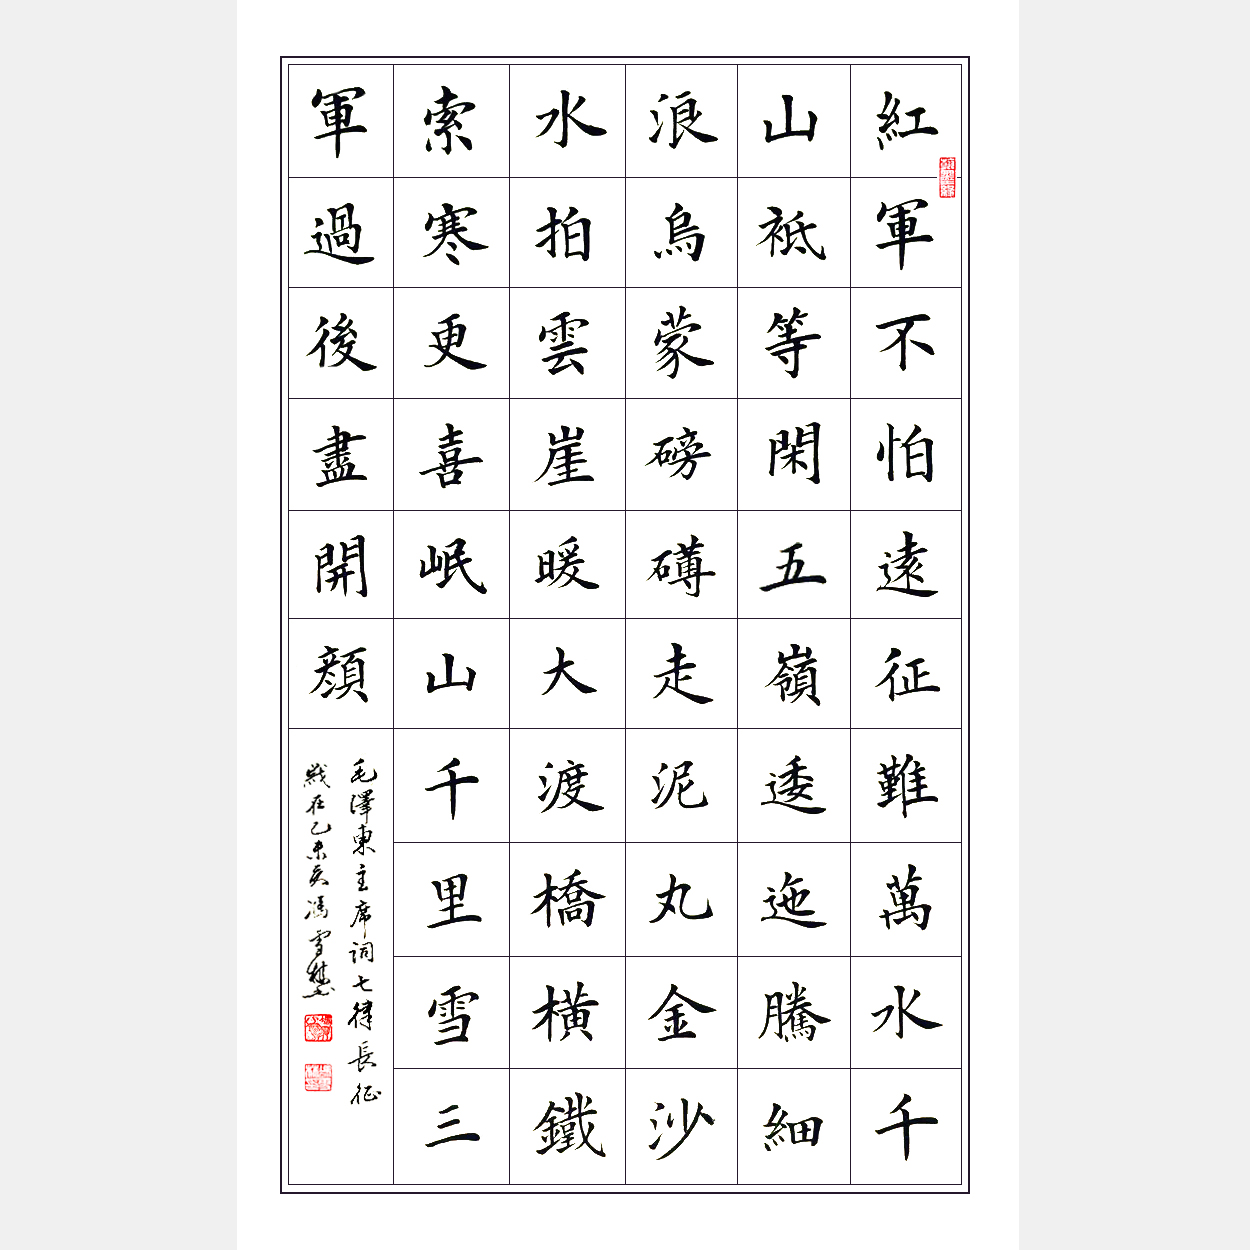 紅軍不怕遠征難萬水千
山祗等閑五嶺逶迤騰細
浪烏蒙磅礴走泥丸金沙
水拍雲崖暖大渡橋橫鐵
索寒更喜岷山千里雪三
軍過後盡開顏
毛澤東主席詞七律長征
歲在乙未 馮雪